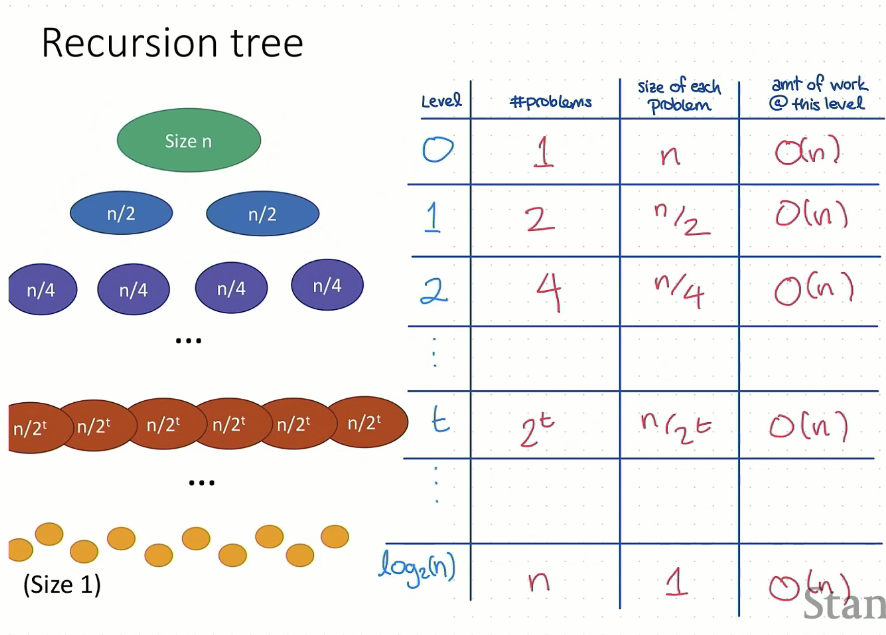 Recursion tree
Size n
n/2 n/2
n/4 n/4 n/4 n/4
...
n/2ᵗ n/2ᵗ n/2ᵗ n/2ᵗ n/2ᵗ n/2ᵗ
...
(Size 1)
Level #problems size of each problem amt of work @ this level
0 1 n O(n)
1 2 n/2 O(n)
2 4 n/4 O(n)
⋮
t 2ᵗ n/2ᵗ O(n)
⋮
log₂(n) n 1 O(n)
Stan